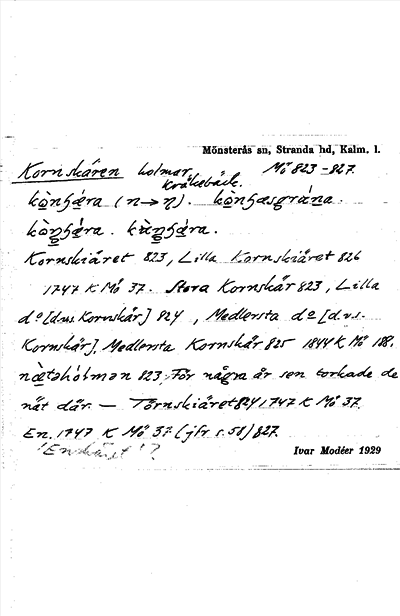 Mönsterås sn, Stranda hd, Kalm. l.
Kornskären holmar, Mö 823-827.
Kråkebäck.
kòn̡ɧæra (n→n̡). kòn̡ɧæsgrána.
kòn̡ɧæra. kùn̡ɧæra.
Kornskiäret 823, Lilla Kornskiäret 826
1747 K Mö 37. Stora Kornskär 823, Lilla
do [dvs. Kornskär] 824, Medlersta do [d.v.s.
Kornskär], Medlersta Kornskär 825 1844 K Mö 188.
næ̀tahólmən 823. För några år sen torkade de
nät där. — Törnskiäret 824 1747 K Mö 37.
En. 1747 K Mö 37 (jfr s. 58) 827.
'Enskäret'?
Ivar Modéer 1929